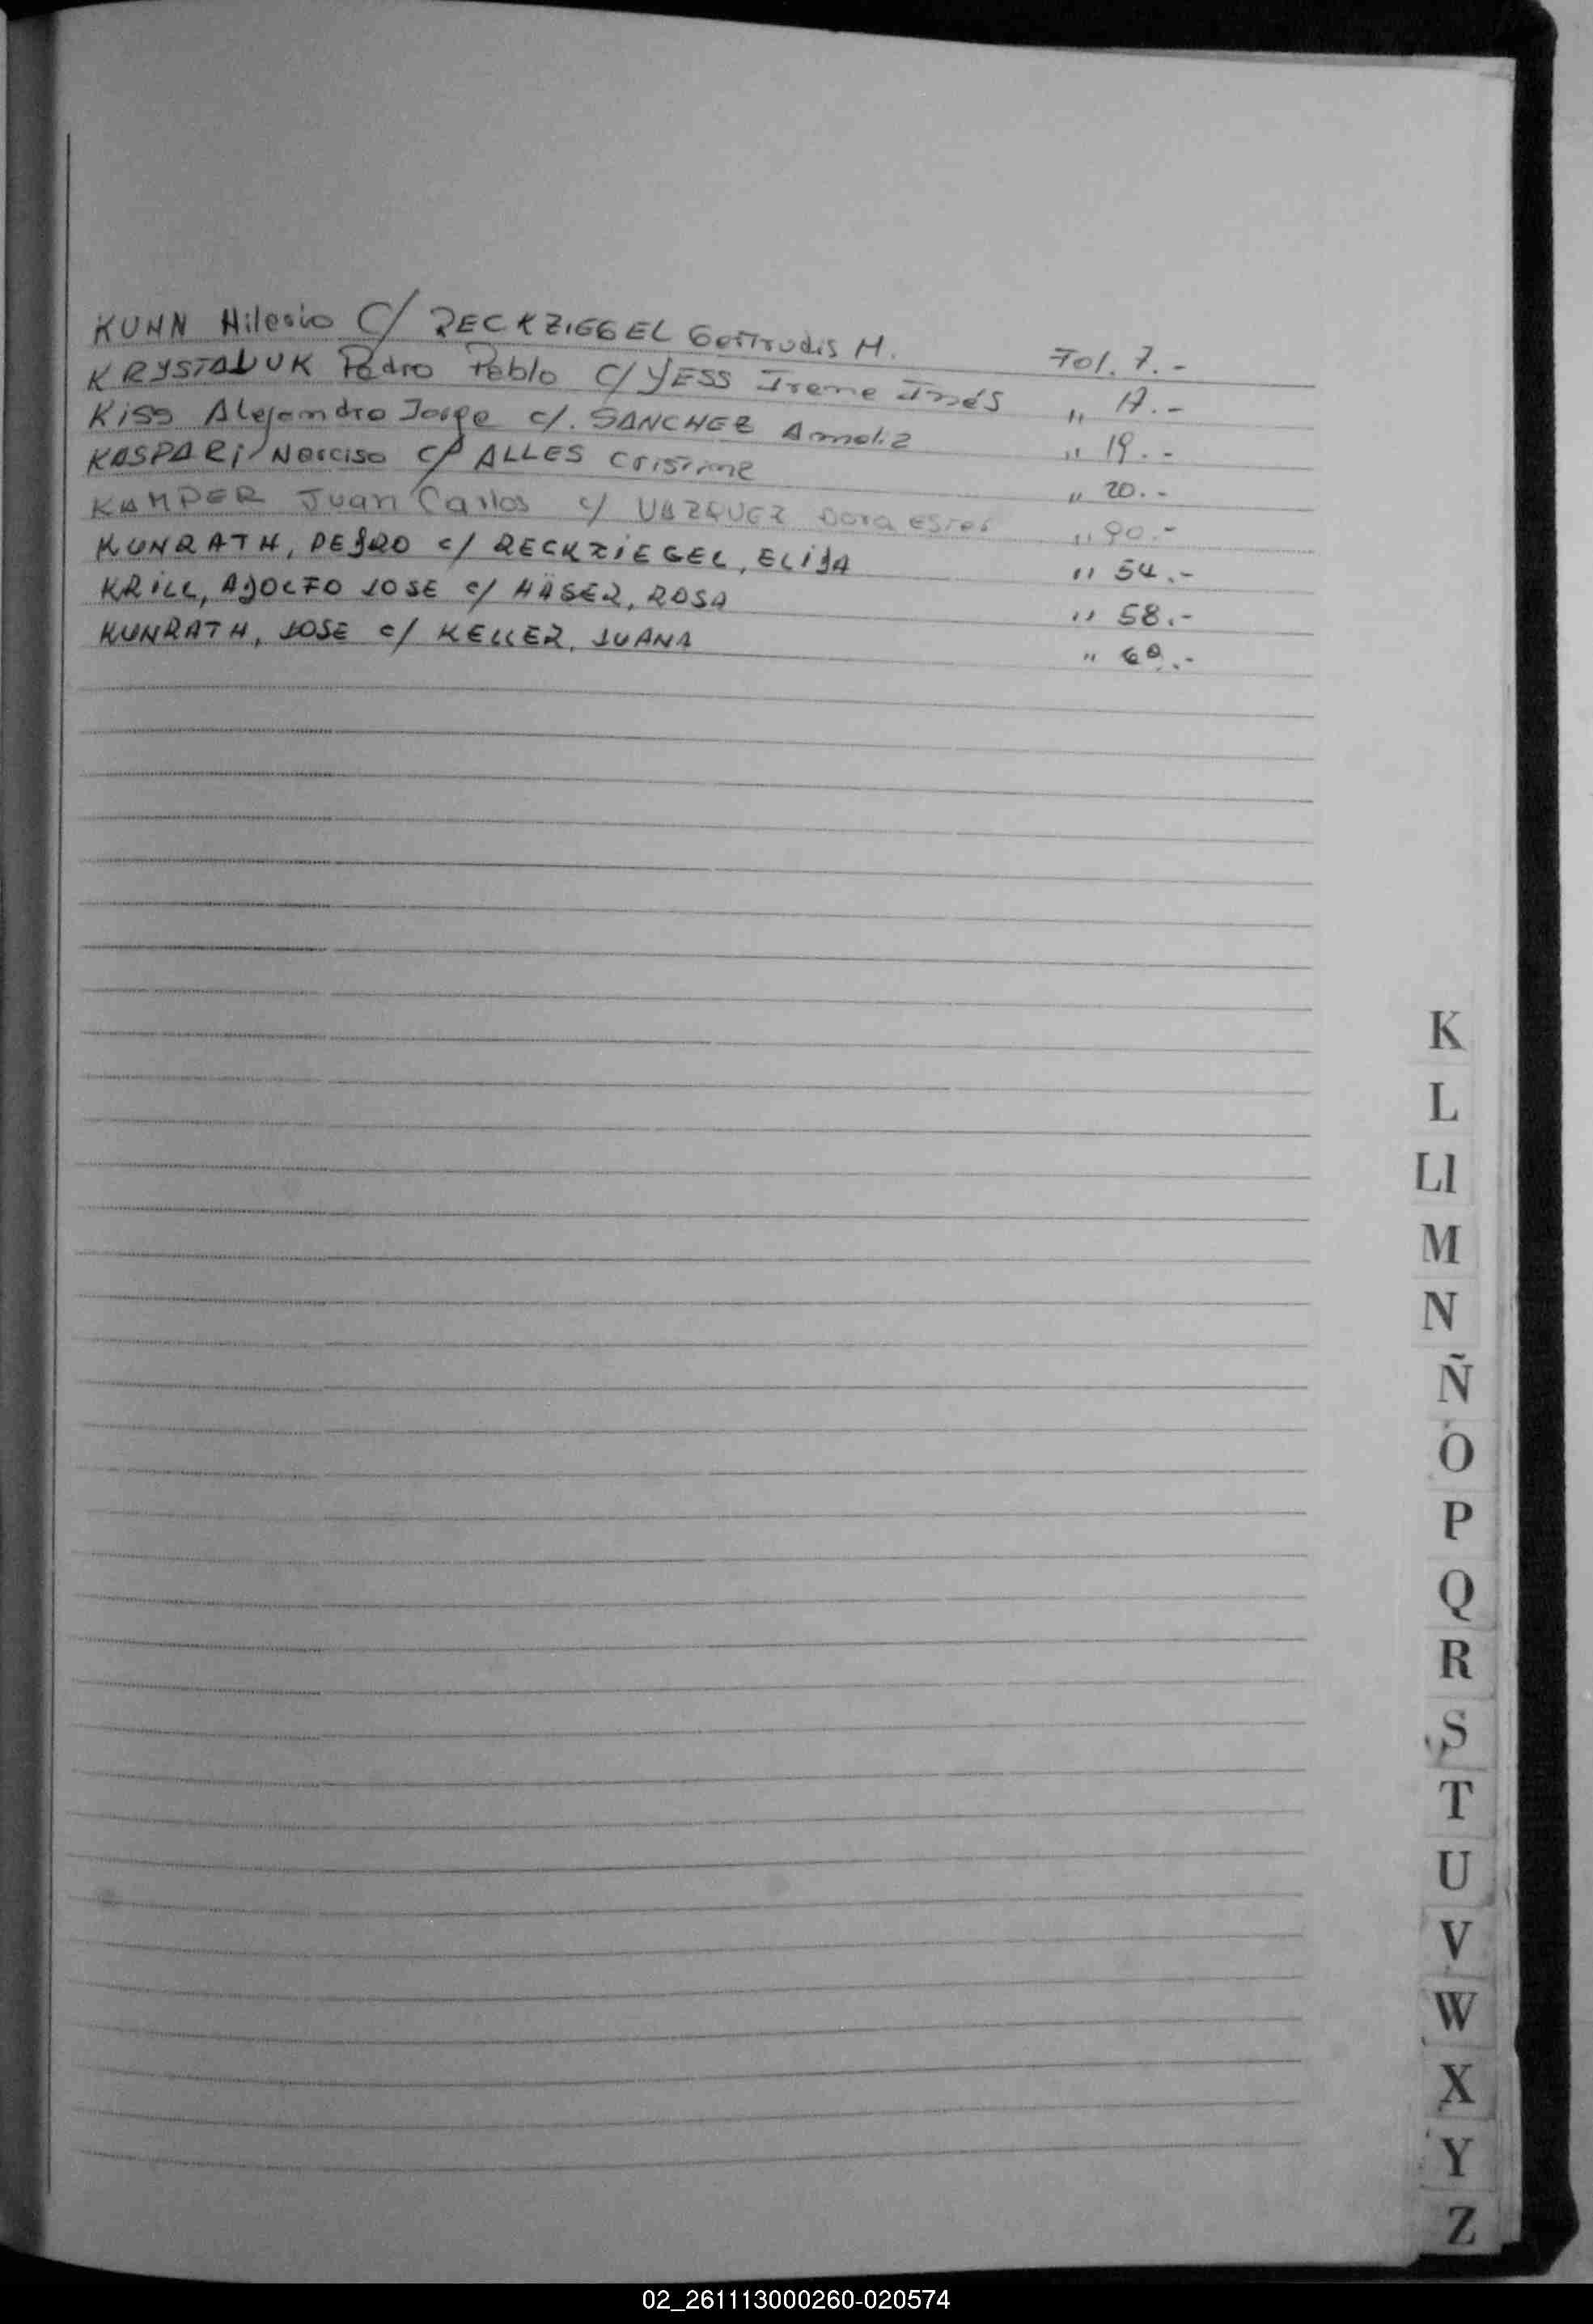 KUHN Hilesio C/ RECKZIEGEL Gertrudis M. Fol. 7.-
KRYSTALUK Pedro Pablo C/ YESS Irene Inés " 17.-
Kiss Alejandro Jorge c/. SANCHEZ Amalia " 19.-
KASPARi Narciso c/ ALLES Cristina " 20.-
KAMPER Juan Carlos c/ VAZQUEZ Dora Ester " 90.-
KUNRATH, PEDRO c/ RECKZIEGEL, ELIDA " 54.-
KRILL, ADOLFO JOSE c/ HÄSER, ROSA " 58.-
KUNRATH, JOSE c/ KELLER, JUANA " 60.-
K
L
Ll
M
N
Ñ
O
P
Q
R
S
T
U
V
W
X
Y
Z
02_261113000260-020574